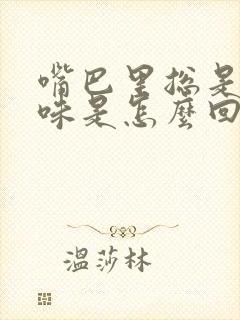 嘴巴里总是
味是怎麼回
溫莎林